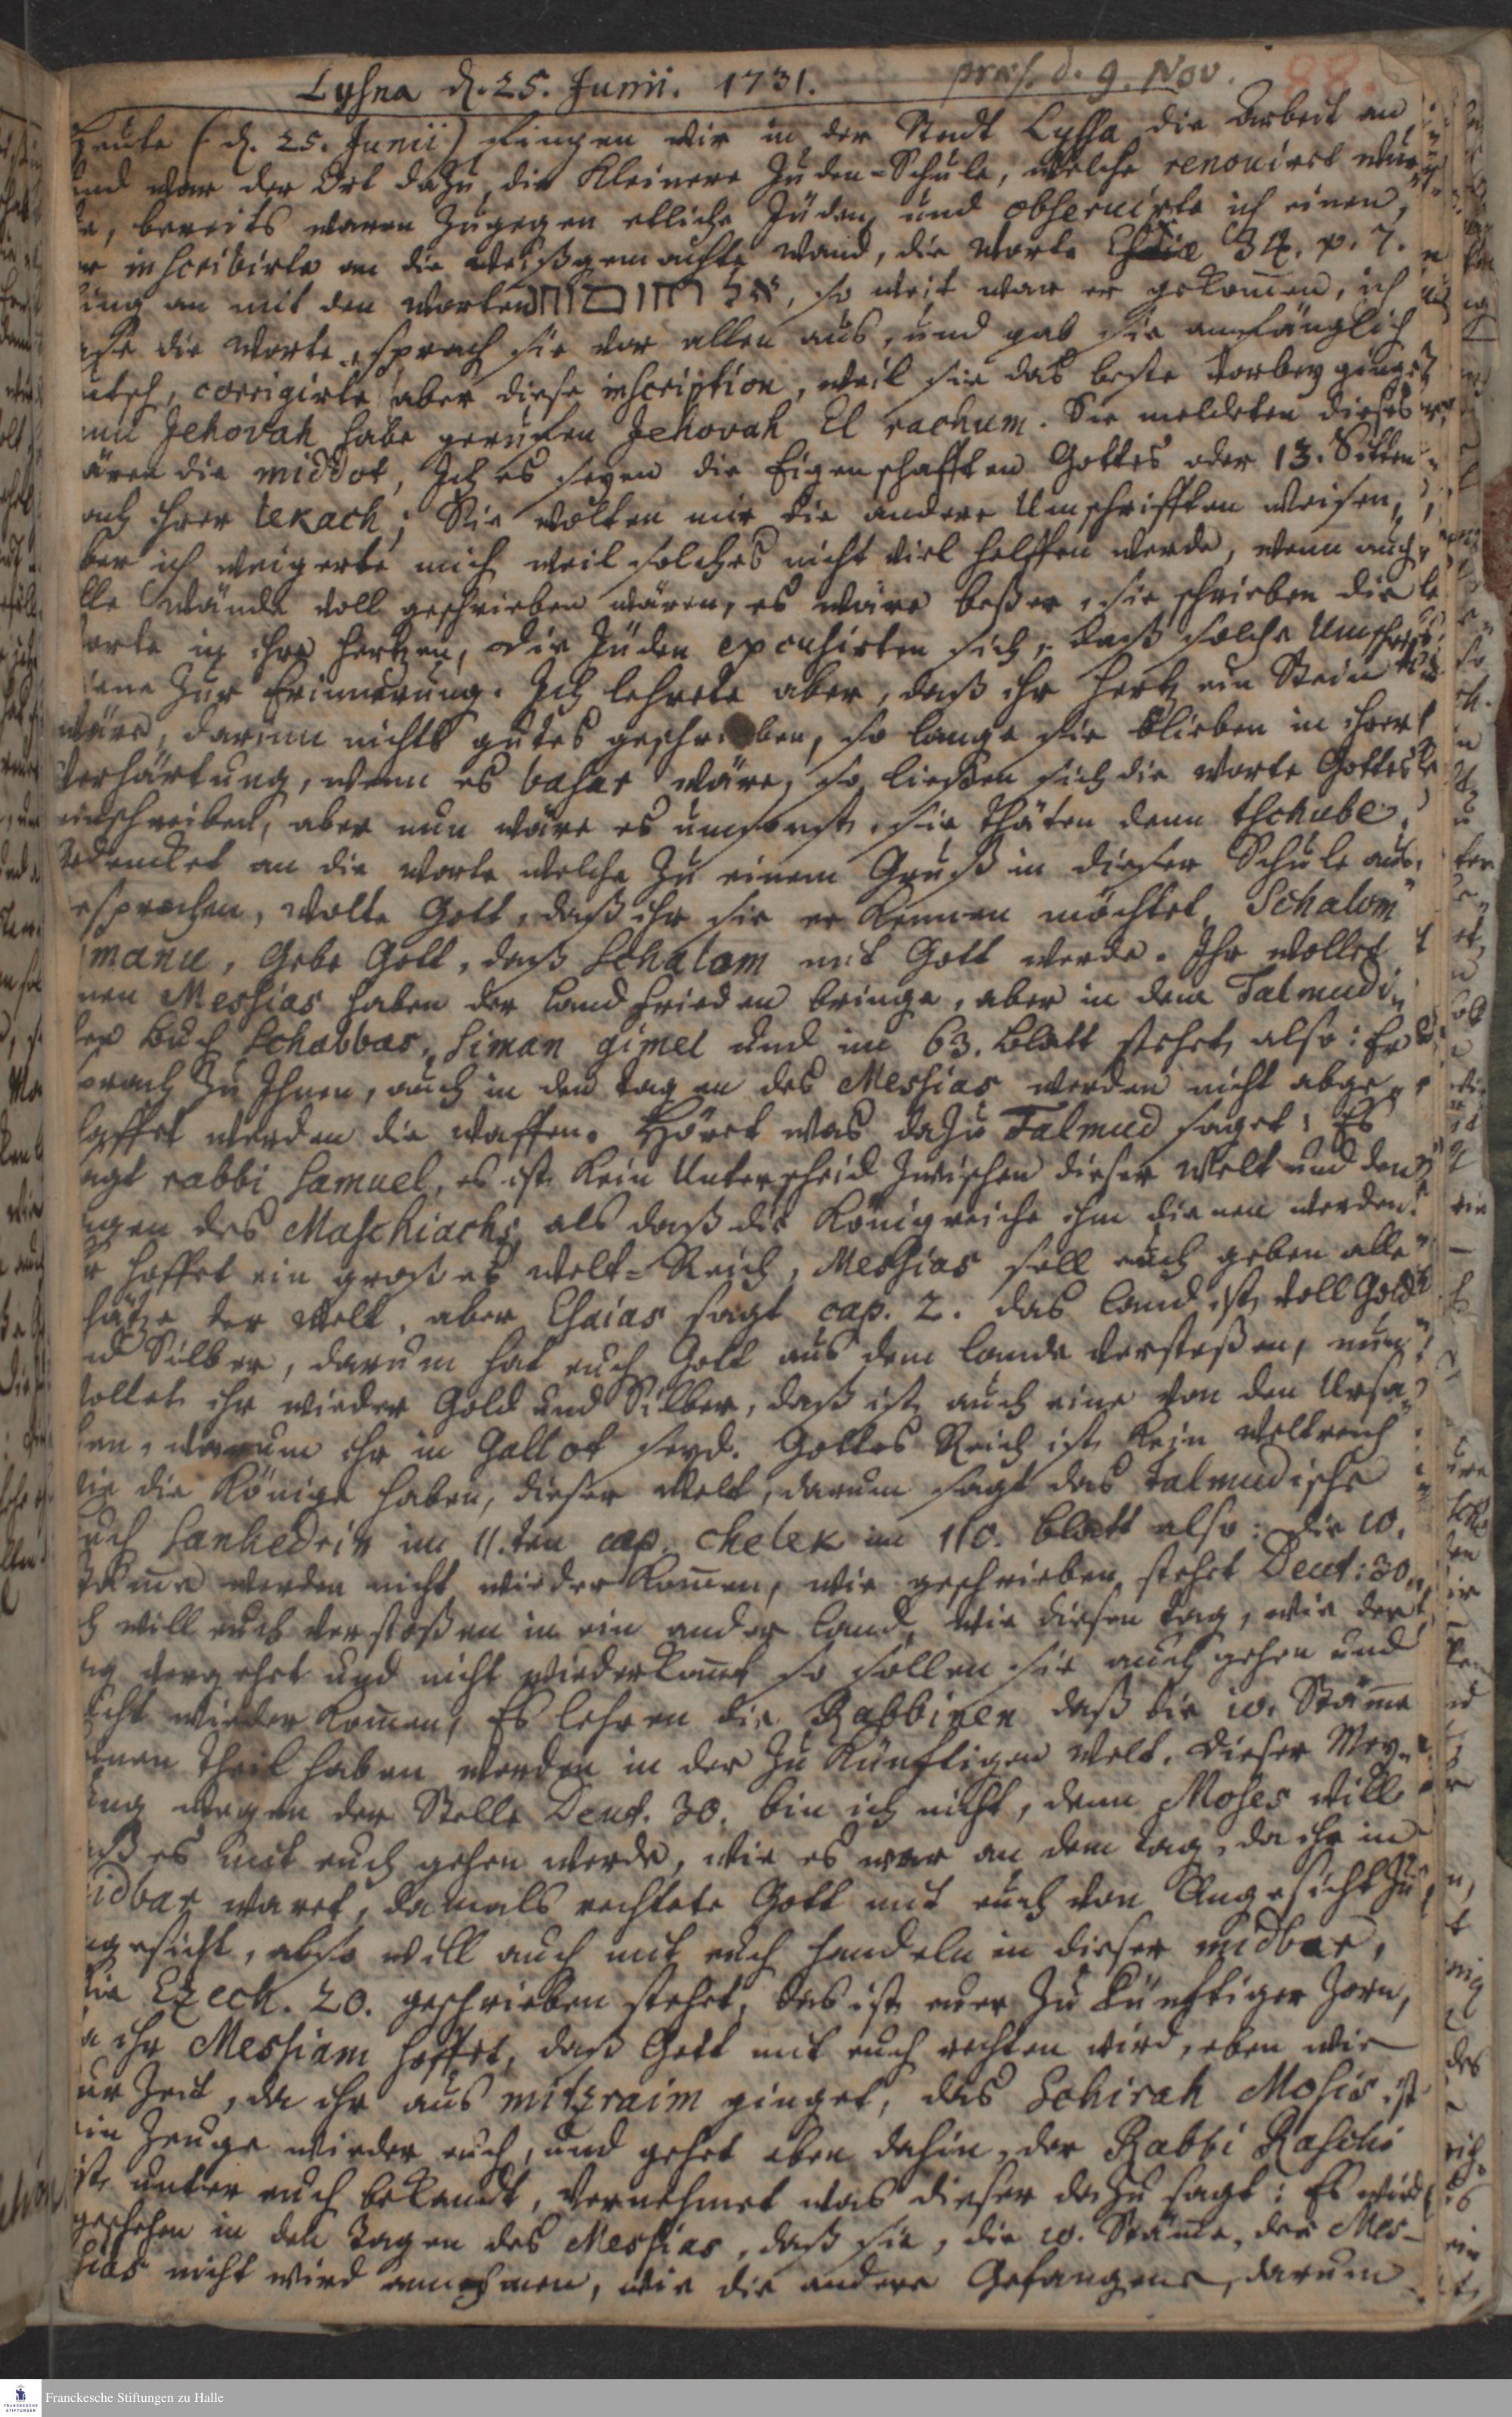 Lyßna d. 25. Junii. 1731.
præs. d. 9. Nov.
88.
Heute (d. 25. Junii) fingen wir in der Stadt Lyssa die Arbeit an
und war der Ort dazu die Kleinere Juden-Schule, welche renoviret wur
e, bereits waren zugegen etliche Juden, und observirte ich einen,
er inscribirte an die weißgemachte Wand, die Worte 34. v. 7.
ing an mit den Worten אל רחום וח, so weit war er gekom̅en, ich
ase die Worte, sprach sie vor allen aus, und gab sie anfänglich
utsch, corrigirte aber diese inscription, weil sie das beste vorbey ginge
Jehovah habe geruffen Jehovah El rachum. Sie meldeten dieses
ären die middot, Ich es seyen die Eigenschafften Gottes oder 13. Sitten
ach ihrer lekach; Sie wolten mir die andere Umschrifften weisen,
ber ich weigerte mich weil solches nicht viel helffen werde, wenn auch
lle Wände voll geschrieben wären, es wäre beßer, sie schrieben die
orte in ihre Hertzen, die Juden excusirten sich, daß solche
iene zur Erinnerung. Ich lehrete aber, daß ihr Hertz ein Stein
wäre, darinn nichts gutes geschrieben, so lange sie blieben in ihrer
Verhärtung, wenn es basar wäre, so ließen sich die Worte Gottes
einschreiben, aber nun wäre es umsonst, sie thäten denn tschube.
Gedencket an die Worte welche zu einem Gruß in dieser Schule aus
esprochen, wolte Gott, daß ihr sie erkennen möchtet, Schalom
imanu, Gebe Gott, daß Schalom mit Gott werde. Ihr wollet
nen Messias haben der Landfrieden bringe, aber in dem Talmudi
Buch Schabbas, Siman gimel und im 63. Blatt stehet also: Er
prach zu Ihnen, auch in den Tagen des Messias werden nicht abge
haffet werden die Waffen. Höret was dazu Talmud saget: Es
agt rabbi Samuel, es ist kein Unterscheid zwischen dieser Welt und den
agen des Maschiachs, als daß die Königreiche ihm dienen werden.
r hoffet ein großes Welt-Reich, Messias soll euch geben alle
hätze der Welt, aber Esaias sagt cap. 2. das Land ist voll Gold
nd Silber, darum hat euch Gott aus dem Lande verstoßen, nun
ollet ihr wieder Gold und Silber, daß ist auch eine von den Ursa
en, warum ihr in Gallot seyd. Gottes Reich ist kein Weltreich
ie die Könige haben, dieser Welt, darum sagt das talmudische
uch Sanhedrin im 11.ten cap. chelek im 110. Blatt also: die 10.
täm̅e werden nicht wiederkom̅en, wie geschrieben stehet Deut: 30.
ch will euch verstoßen in ein ander Land, wie diesen Tag, wie der
ag vergehet und nicht wiederkom̅t so sollen sie auch gehen und
icht wiederkom̅en, Es lehren die Rabbinen daß die 10. Stäm̅e
inen Theil haben werden in der zukünftigen Welt. Dieser Mey-
ung wegen der Stelle Deut. 30. bin ich nicht, denn Moses will
aß es mit euch gehen werde, wie es war an dem Tag, da ihr in
idbar waret, damals rechtete Gott mit euch von Angesicht zu
ngesicht, also will auch mit euch handeln in dieser midbar,
ie Ezech. 20. geschrieben stehet, das ist euer zukünftiger Zorn,
a ihr Messiam hoffet, daß Gott mit euch rechten wird, eben wie
ur Zeit, da ihr aus mitzraim ginget, das Schirah Mosis ist
ein Zeuge wieder euch, und gehet eben dahin, der Rabbi Raschi
ist unter euch bekandt, vernehmet was dieser dazu sagt: Es wird
geschehen in den Tagen des Messias, daß sie, die 10. Stäm̅e, der Mes-
sias nicht wird annehmen, wie die andere Gefangene, darum
Franckesche Stiftungen zu Halle